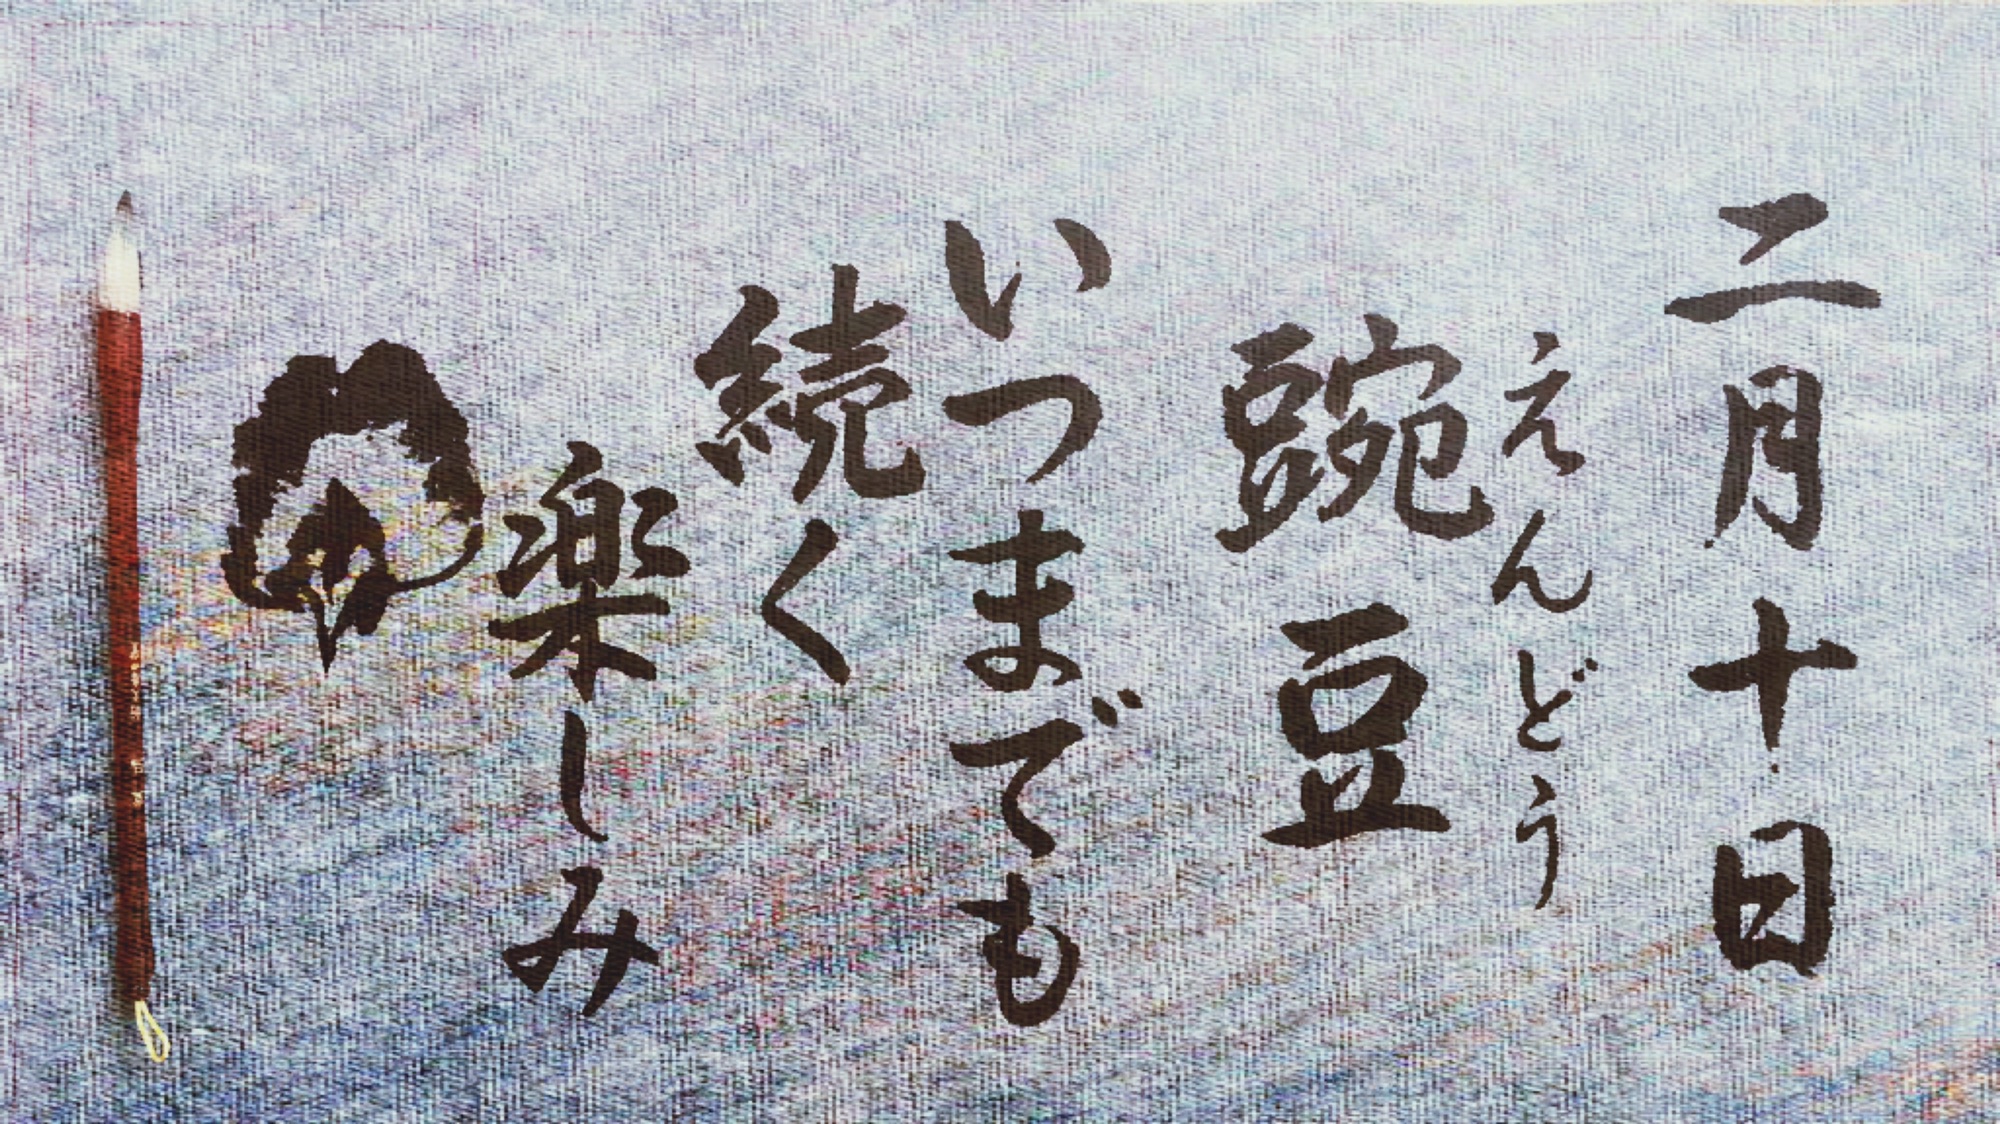 二月十日
えんどう
豌豆
いつまでも
続く
楽しみ